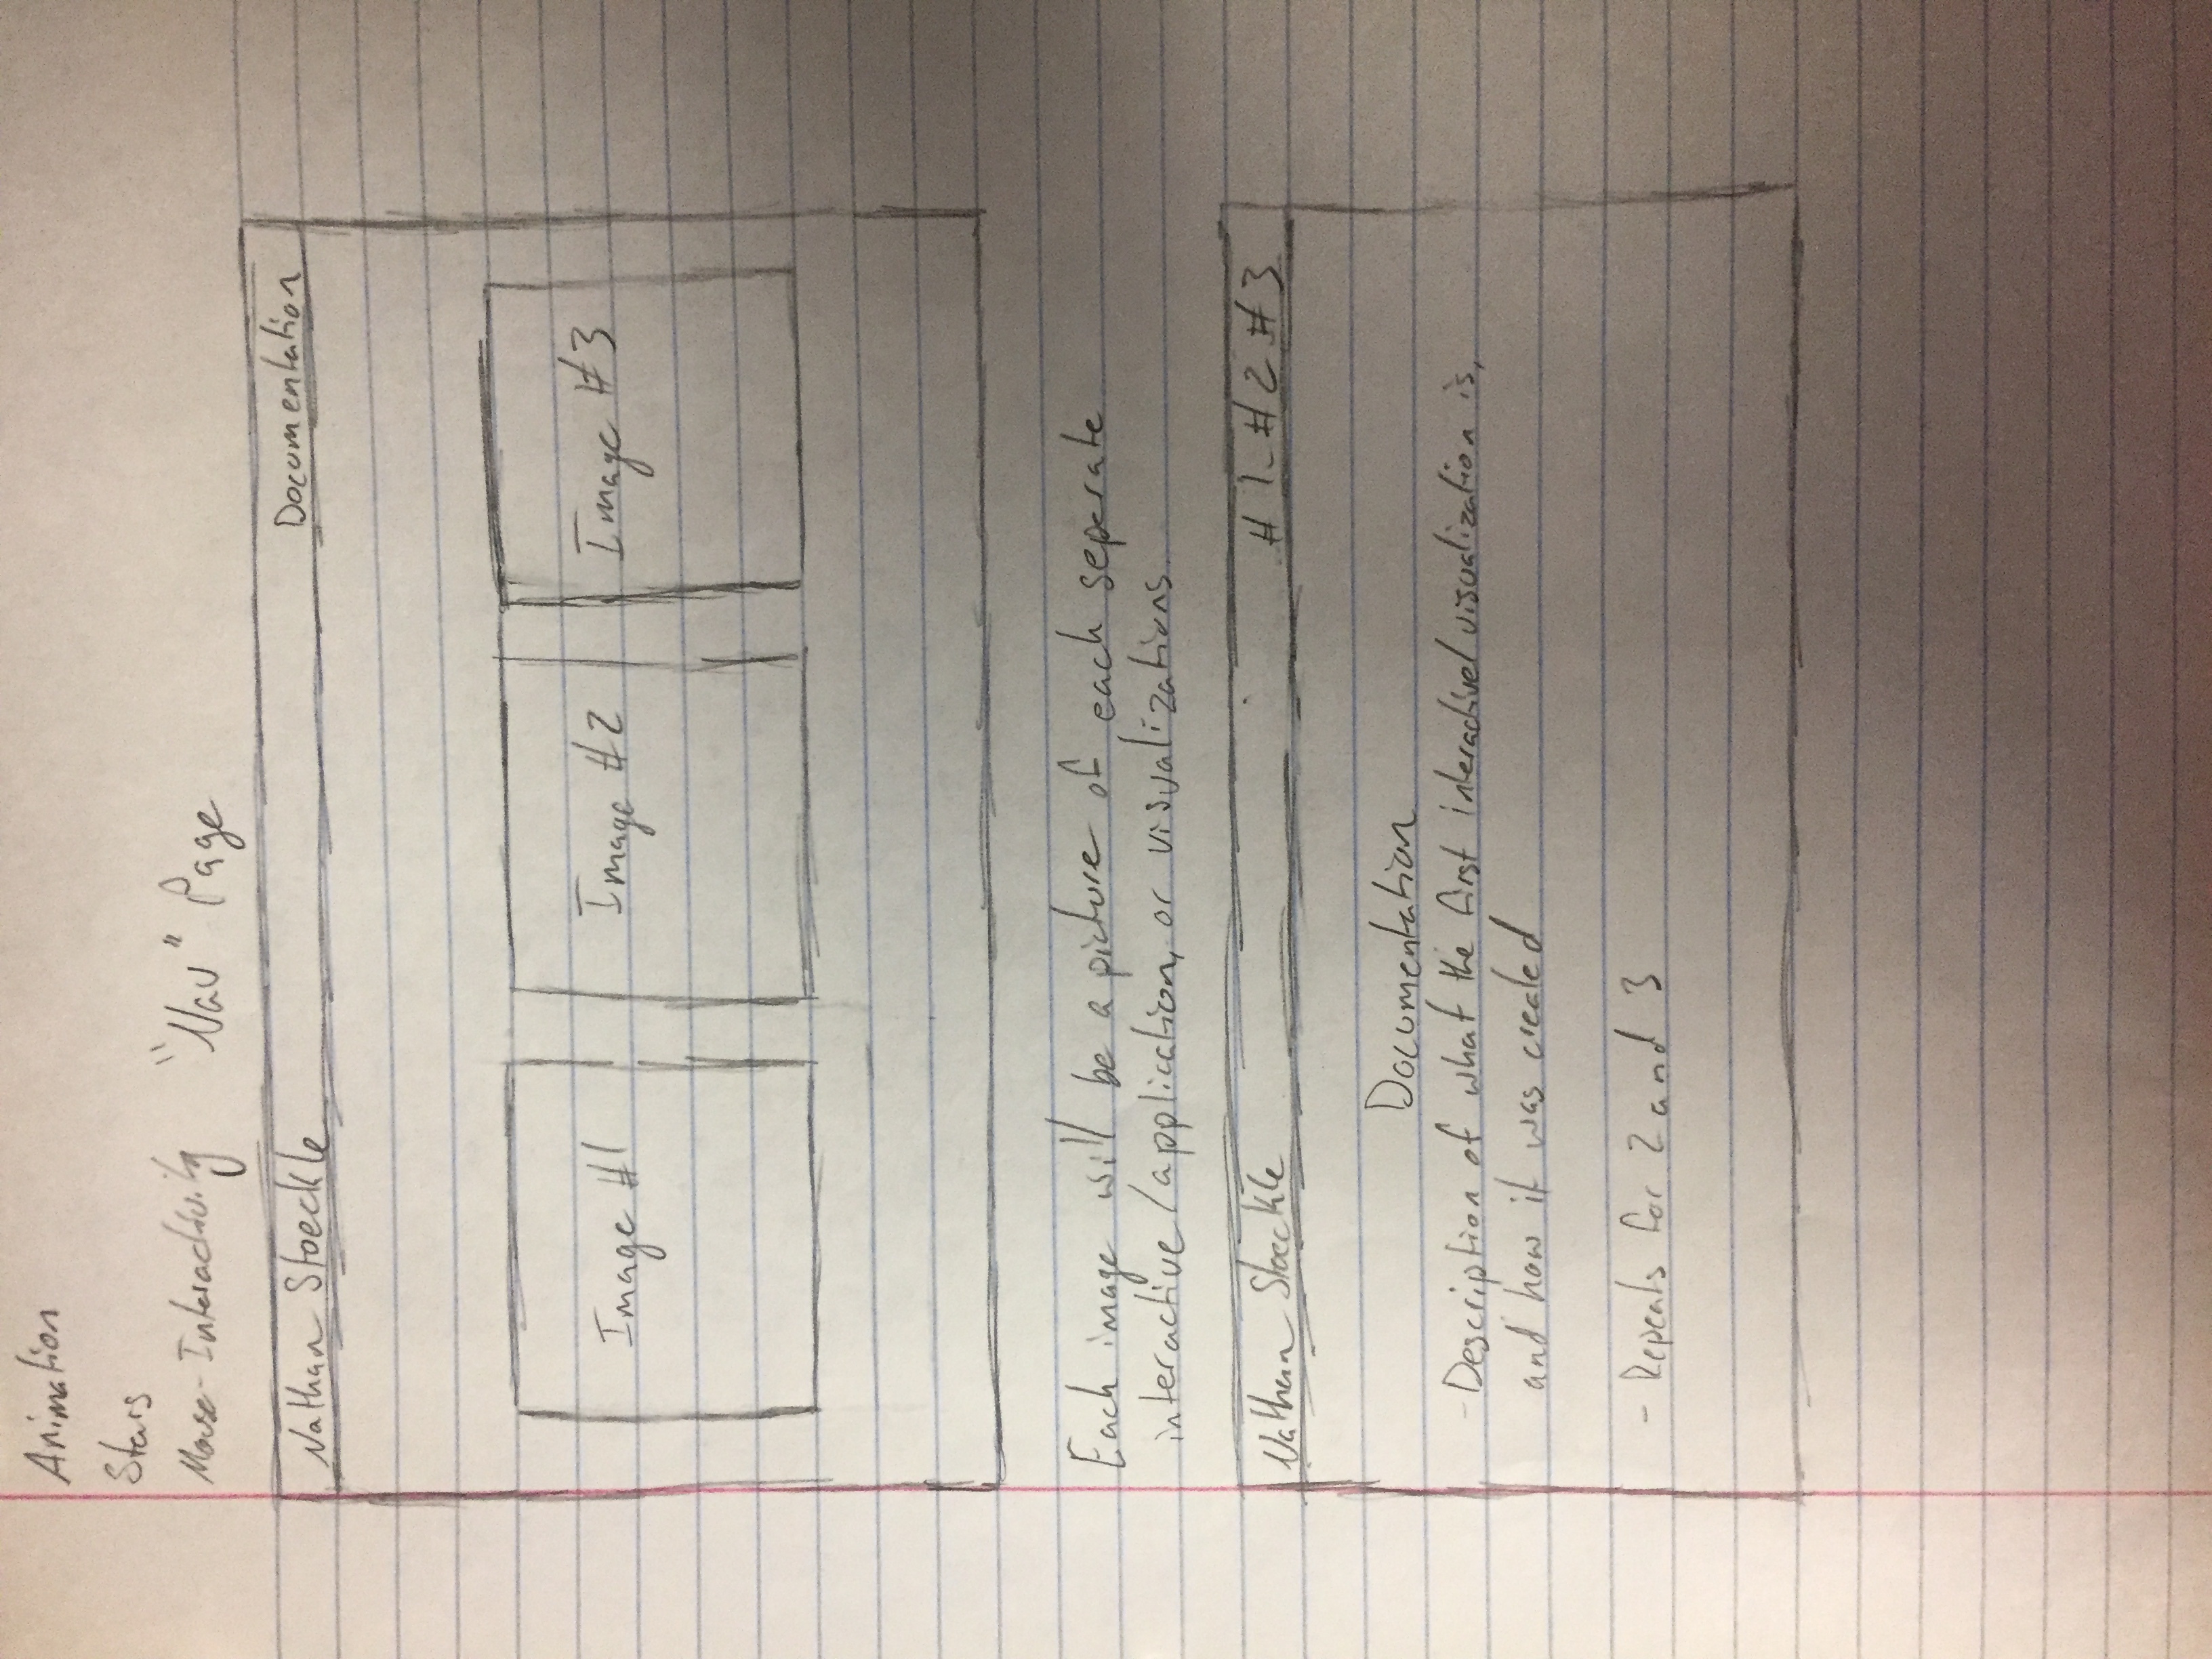 Animation
Stars
Mouse-Interactivity
"Nav" Page
Nathan Stoeckle
Documentation
Image #1
Image #2
Image #3
Each image will be a picture of each seperate
interactive/application, or visualizations.
Nathan Stoeckle
#1 #2 #3
Documentation
- Description of what the first interactive/visualization is,
and how it was created
- Repeats for 2 and 3